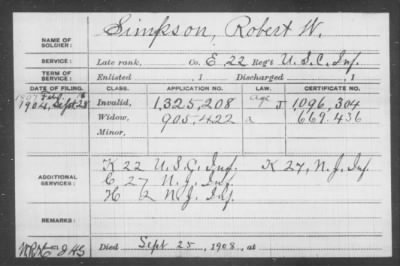 NAME OF SOLDIER: Simpson, Robert W.
SERVICE: Late rank, Co. E 22 Reg't U.S.C. Inf.
TERM OF SERVICE: Enlisted , 1 Discharged , 1
DATE OF FILING. CLASS. APPLICATION NO. LAW. CERTIFICATE NO.
1904, Sept. 28 Invalid, 1,325,208 1,096,304
Widow, 905,422 669.436
Minor,
ADDITIONAL SERVICES: K 22 U.S.C. Inf. K 27, N.J. Inf.
C 27 N.J. Inf.
H 2 N.J. Inf.
REMARKS:
Died Sept 25, 1908, at